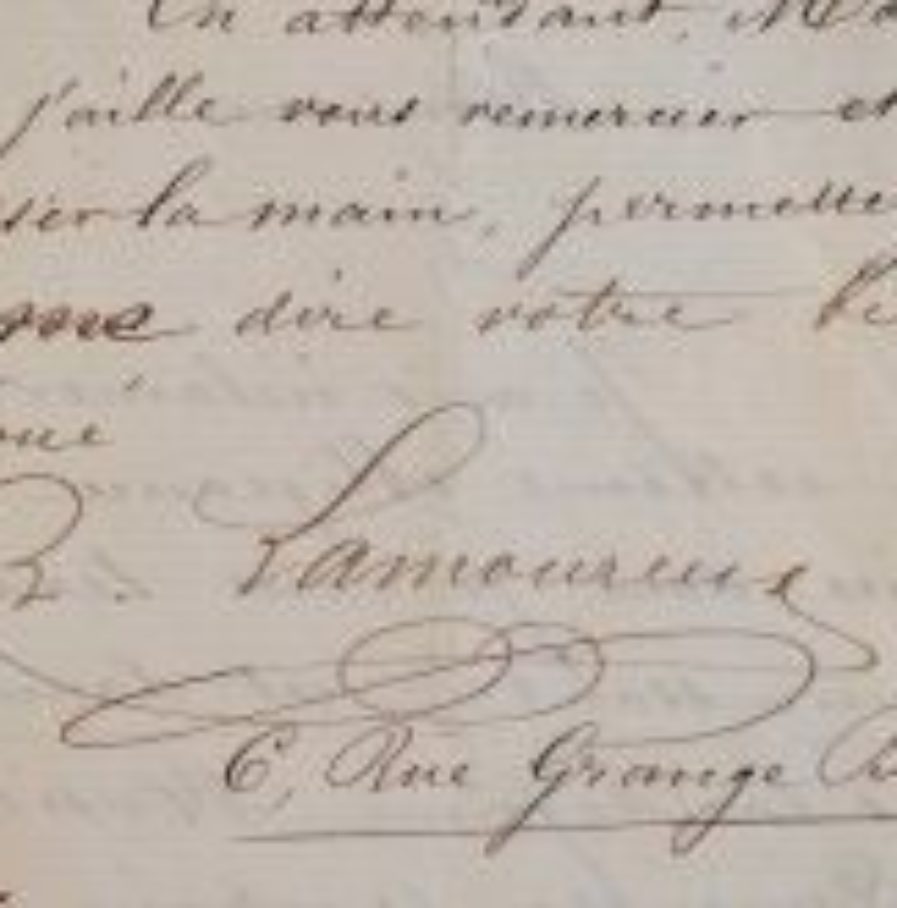 En attendant, M
j'aille vous remercier et
ser la main, permette
me dire votre
oué
Lamoureux
6, Rue Grange B